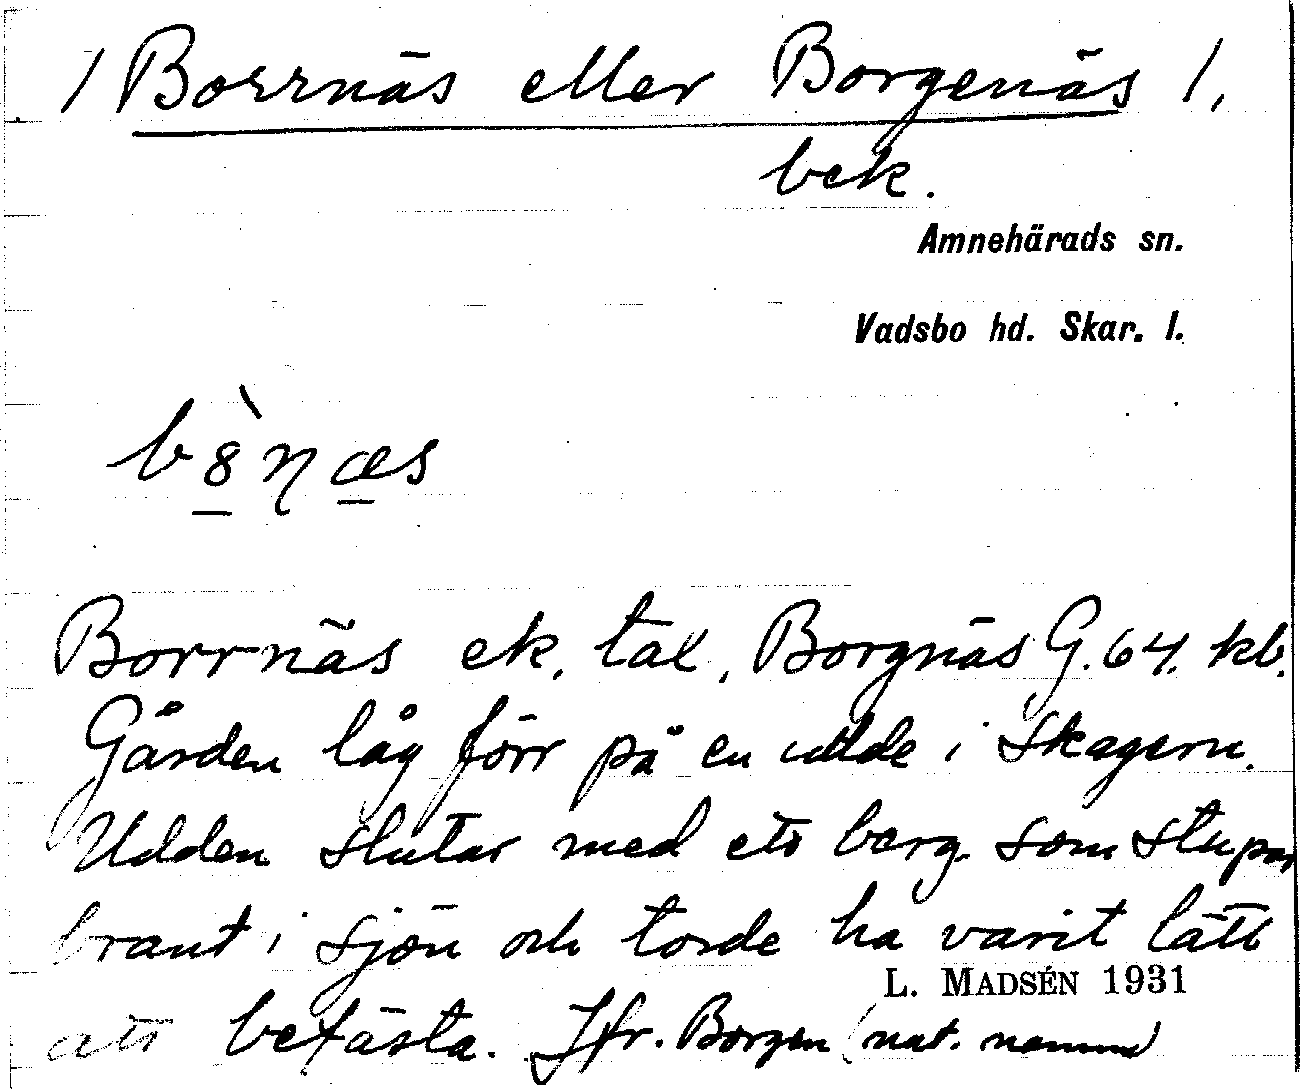 / Borrnäs eller Borgenäs /,
bek.
Amnehärads sn.
Vadsbo hd. Skar. l.
Borrnäs ek, tal, Borgnäs G. 64. kb.
Gården låg förr på en udde i Skagern.
Udden slutar med ett berg som stupar
brant i sjön och torde ha varit lätt
L. MADSÉN 1931
att befästa. Jfr. Borgen (nat. namn)